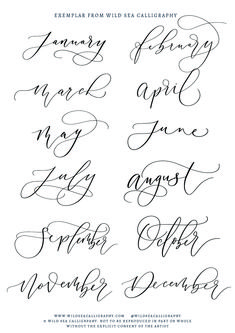 EXEMPLAR FROM WILD SEA CALLIGRAPHY
January february
march april
may June
July august
September October
November December
WWW.WILDSEACALLIGRAPHY.COM @WILDSEACALLIGRAPHY
© WILD SEA CALLIGRAPHY. NOT TO BE REPRODUCED IN PART OR WHOLE
WITHOUT THE EXPLICIT CONSENT OF THE ARTIST